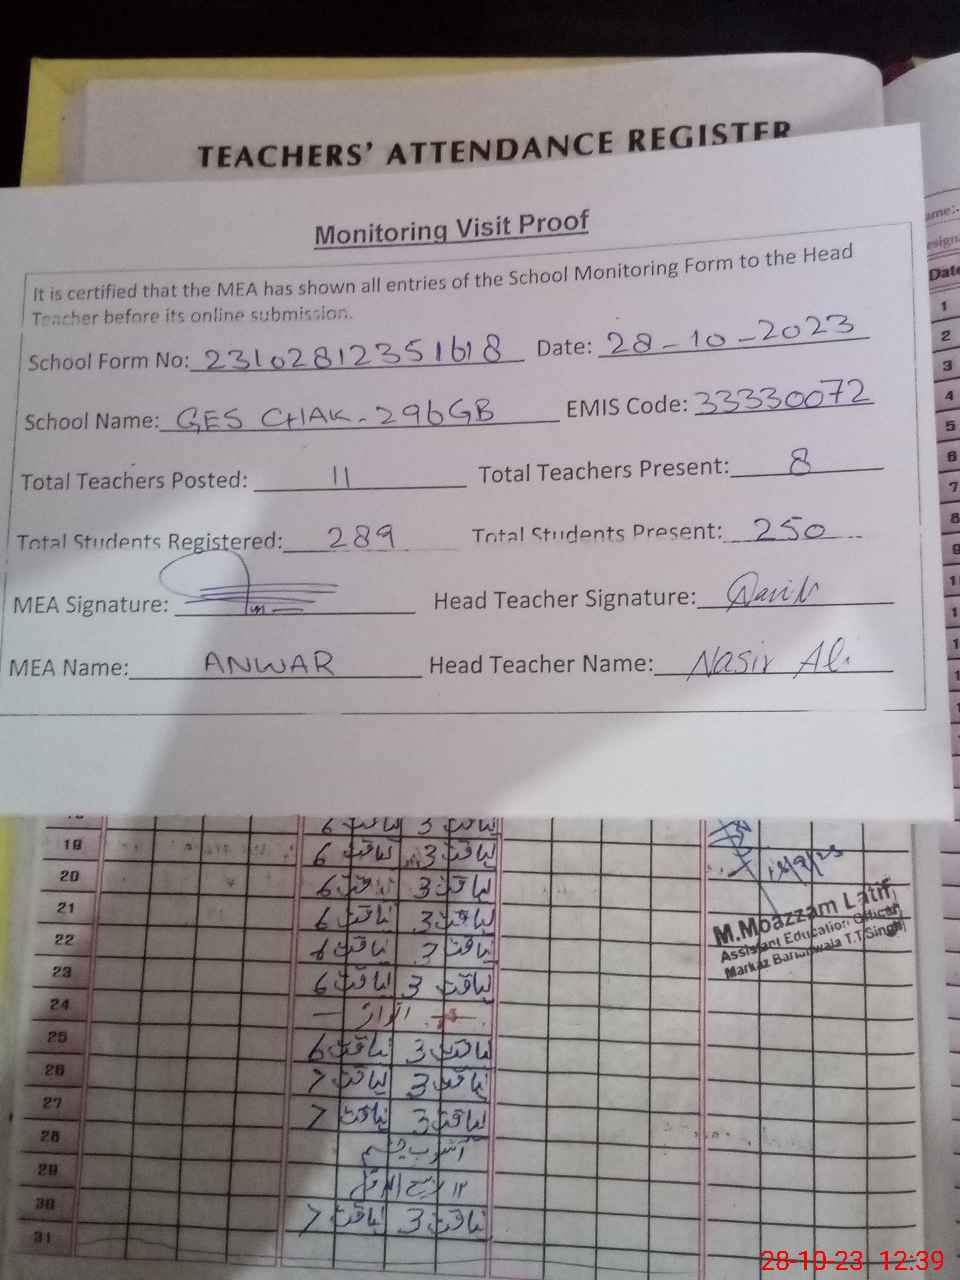 TEACHERS' ATTENDANCE REGISTER
Monitoring Visit Proof
It is certified that the MEA has shown all entries of the School Monitoring Form to the Head
Teacher before its online submission.
School Form No: 23102812351618 Date: 28-10-2023
School Name: GES CHAK-296GB EMIS Code: 33330072
Total Teachers Posted: 11 Total Teachers Present: 8
Total Students Registered: 289 Total Students Present: 250
MEA Signature: Head Teacher Signature:
MEA Name: ANWAR Head Teacher Name: Nasir Ali
Date
1
2
3
4
5
6
7
8
9
19 لیاقت 3 لیاقت 6
20 لیاقت 3 لیاقت 6
21 لیاقت 3 لیاقت 6
22 لیاقت 3 لیاقت 6
23 لیاقت 3 لیاقت 6
24 اتوار
25 لیاقت 3 لیاقت 6
26 لیاقت 3 لیاقت 7
27 لیاقت 3 لیاقت 7
28 آشوب چشم
29 ۱۲ ربیع الاول
30 لیاقت 3 لیاقت 7
31
M.Moazzam Latif
Assistant Education Officer
Markaz T.T.Singh
28-10-23 12:39